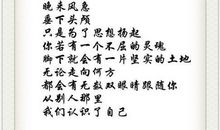 晚来风急
垂下头颅
只是为了思想扬起
你若有一个不屈的灵魂
脚下就会有一片坚实的土地
无论走向何方
都会有无数双眼睛跟随你
从别人那里
我们认识了自己